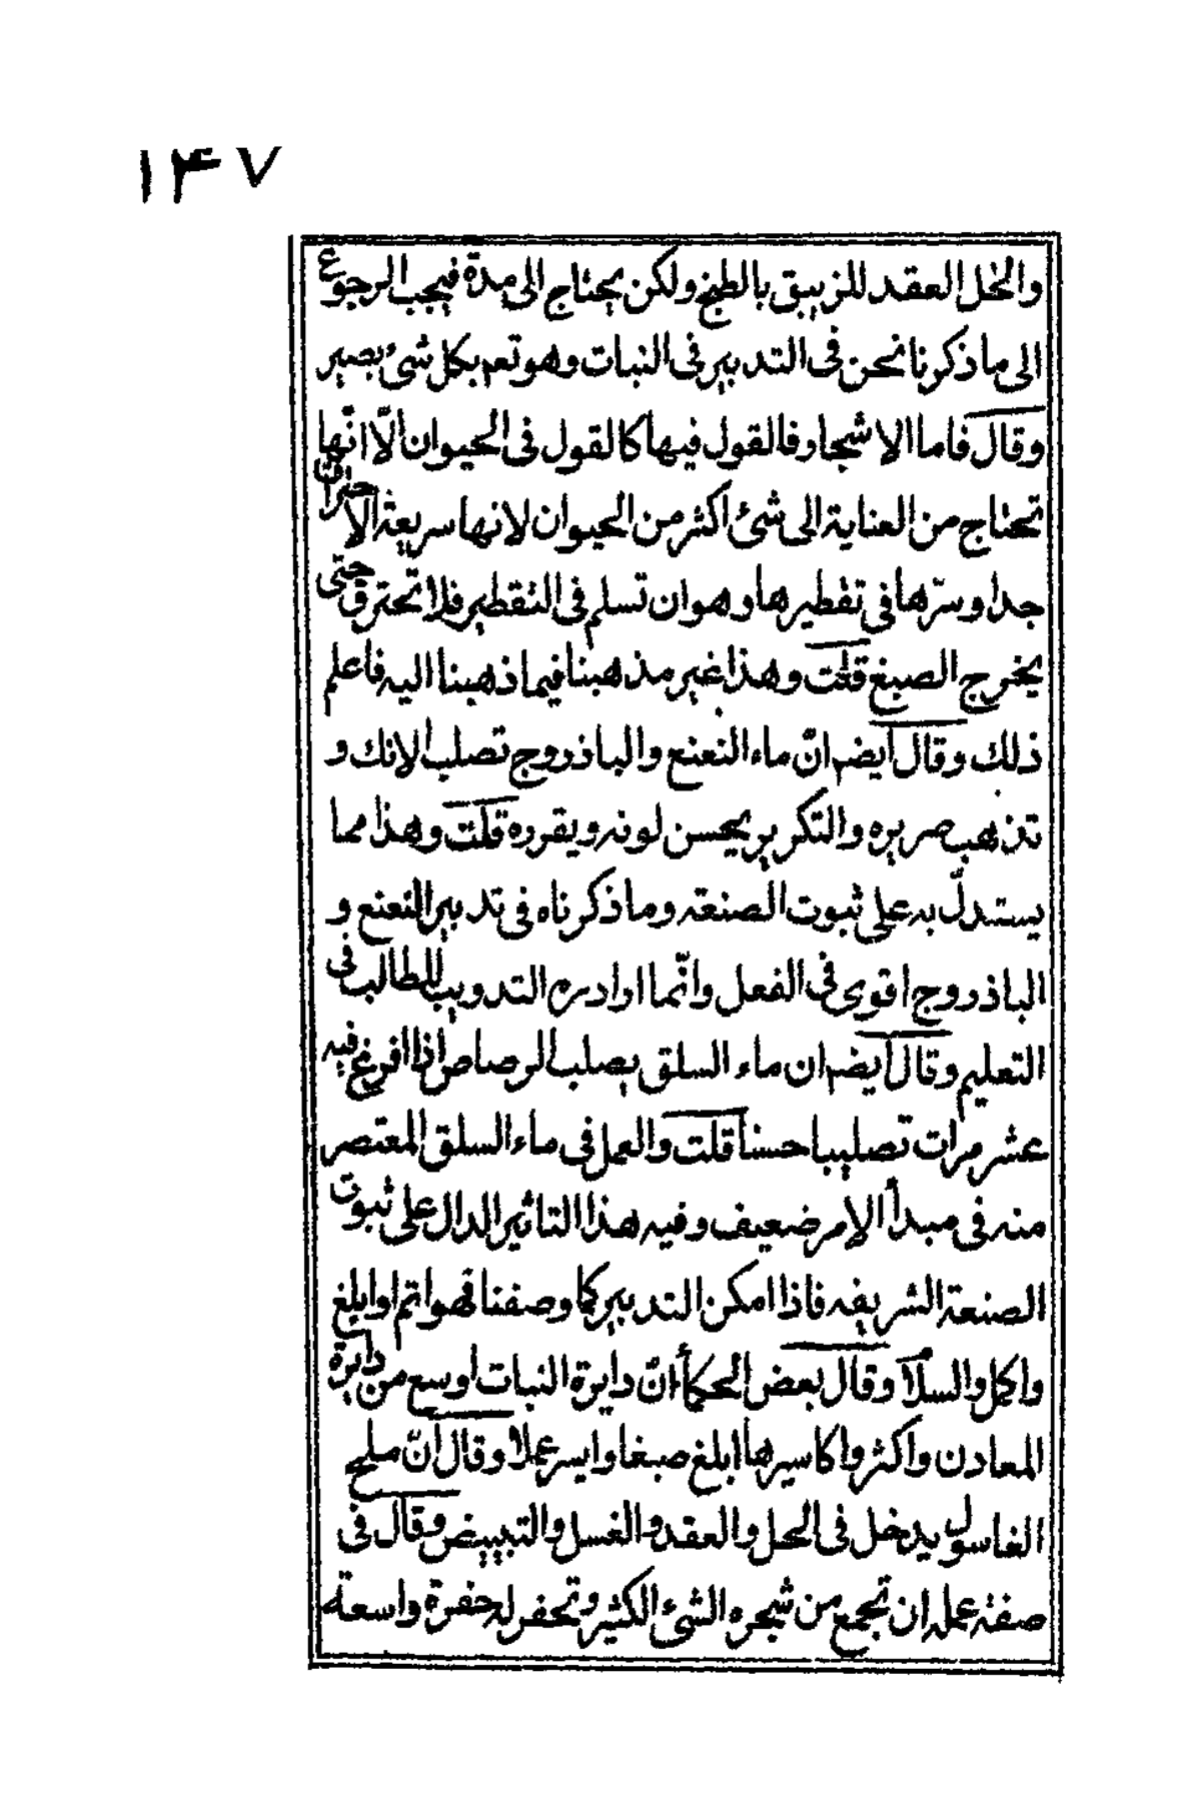 ۱۴۷
والخل العقد للزيبق بالطبخ ولكن يحتاج الى مدة فيجب الرجوع
الى ما ذكرنا نحن فى التدبير فى النبات وهو تعم بكل شئ بصير
وقال فاما الاشجار فالقول فيها كالقول فى الحيوان الّا انّها
تحتاج من العناية الى شئ اكثر من الحيوان لانها سريعة الاحتراق
جدا وسرّها فى تقطيرها وهو ان تسلم فى التقطير فلا تحترق حتى
يخرج الصبغ قلت وهذا غير مذهبنا فيما ذهبنا اليه فاعلم
ذلك وقال ايضم انّ ماء النعنع والباذروج تصلب الانك و
تذهب صريره والتكرير يحسن لونه ويقرره قلت وهذا مما
يستدلّ به على ثبوت الصنعة وما ذكرناه فى تدبير النعنع و
الباذروج اقوى فى الفعل وانّما اراد به التدويب للطالب فى
التعليم وقال ايضم ان ماء السلق يصلب الرصاص اذا افرغ فيه
عشر مرات تصليبا حسنا قلت والعمل فى ماء السلق المعتصر
منه فى مبدأ الامر ضعيف وفيه هذا التاثير الدال على ثبوت
الصنعة الشريفه فاذا امكن التدبير كما وصفنا فهو اتم اوابلغ
واكمل والسلام وقال بعض الحكماء انّ دايرة النبات اوسع من دايرة
المعادن واكثر واكاسيرها ابلغ صبغا وايسر عملا وقال انّ ملح
الغاسول يدخل فى الحل والعقد والغسل والتبييض وقال فى
صفة عمله ان تجمع من شجره الشئ الكثير وتحفر له حفرة واسعة